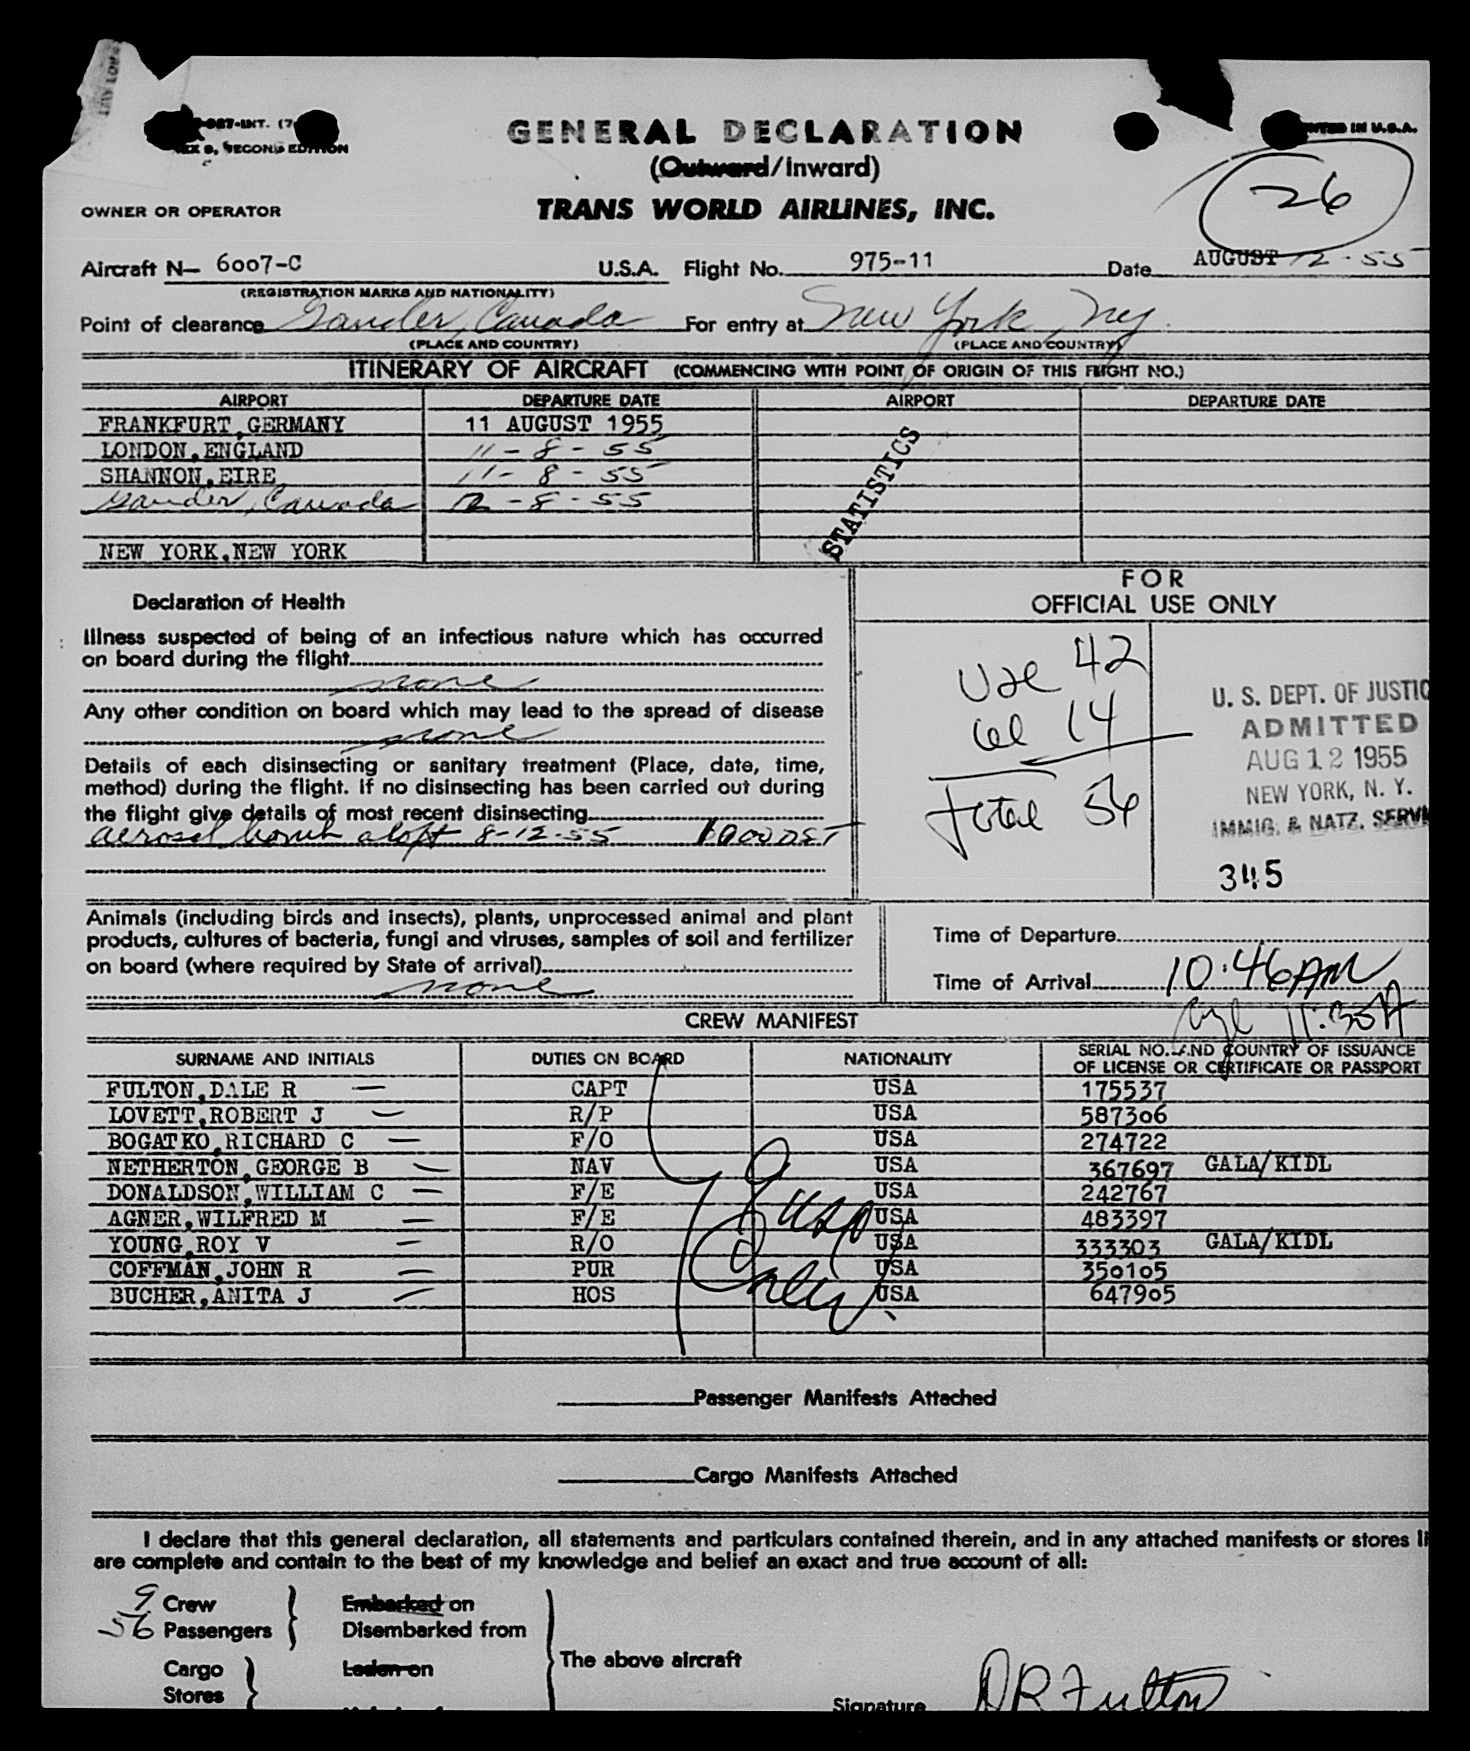 -INT. (7
SECOND EDITION
GENERAL DECLARATION
PRINTED IN U.S.A.
(Outward/Inward)
26
OWNER OR OPERATOR
TRANS WORLD AIRLINES, INC.
Aircraft N— 6007-C U.S.A. Flight No. 975-11 Date AUGUST 12-55
(REGISTRATION MARKS AND NATIONALITY)
Point of clearance Gander, Canada For entry at New York, Ny.
(PLACE AND COUNTRY) (PLACE AND COUNTRY)
ITINERARY OF AIRCRAFT (COMMENCING WITH POINT OF ORIGIN OF THIS FLIGHT NO.)
AIRPORT DEPARTURE DATE AIRPORT DEPARTURE DATE
FRANKFURT,GERMANY 11 AUGUST 1955
LONDON,ENGLAND 11-8-55
SHANNON,EIRE 11-8-55
Gander, Canada 12-8-55
NEW YORK,NEW YORK
STATISTICS
Declaration of Health
FOR
OFFICIAL USE ONLY
Illness suspected of being of an infectious nature which has occurred
on board during the flight
none
Any other condition on board which may lead to the spread of disease
none
Details of each disinsecting or sanitary treatment (Place, date, time,
method) during the flight. If no disinsecting has been carried out during
the flight give details of most recent disinsecting
aerosol bomb aloft 8-12-55 1000 DST
42
14
Total 56
U. S. DEPT. OF JUSTIC
ADMITTED
AUG 12 1955
NEW YORK, N. Y.
IMMIG. & NATZ. SERV
345
Animals (including birds and insects), plants, unprocessed animal and plant
products, cultures of bacteria, fungi and viruses, samples of soil and fertilizer
on board (where required by State of arrival)
none
Time of Departure
Time of Arrival 10:46 AM
11:30A
CREW MANIFEST
SURNAME AND INITIALS DUTIES ON BOARD NATIONALITY SERIAL NO. AND COUNTRY OF ISSUANCE
OF LICENSE OR CERTIFICATE OR PASSPORT
FULTON,DALE R — CAPT USA 175537
LOVETT,ROBERT J — R/P USA 587306
BOGATKO,RICHARD C — F/O USA 274722
NETHERTON,GEORGE B — NAV USA 367697 GALA/KIDL
DONALDSON,WILLIAM C — F/E USA 242767
AGNER,WILFRED M — F/E USA 483397
YOUNG,ROY V — R/O USA 333303 GALA/KIDL
COFFMAN,JOHN R — PUR USA 350105
BUCHER,ANITA J — HOS USA 647905
Passenger Manifests Attached
Cargo Manifests Attached
I declare that this general declaration, all statements and particulars contained therein, and in any attached manifests or stores li
are complete and contain to the best of my knowledge and belief an exact and true account of all:
9 Crew Embarked on
56 Passengers Disembarked from
The above aircraft
Cargo Laden on
Stores
Signature D R Fulton